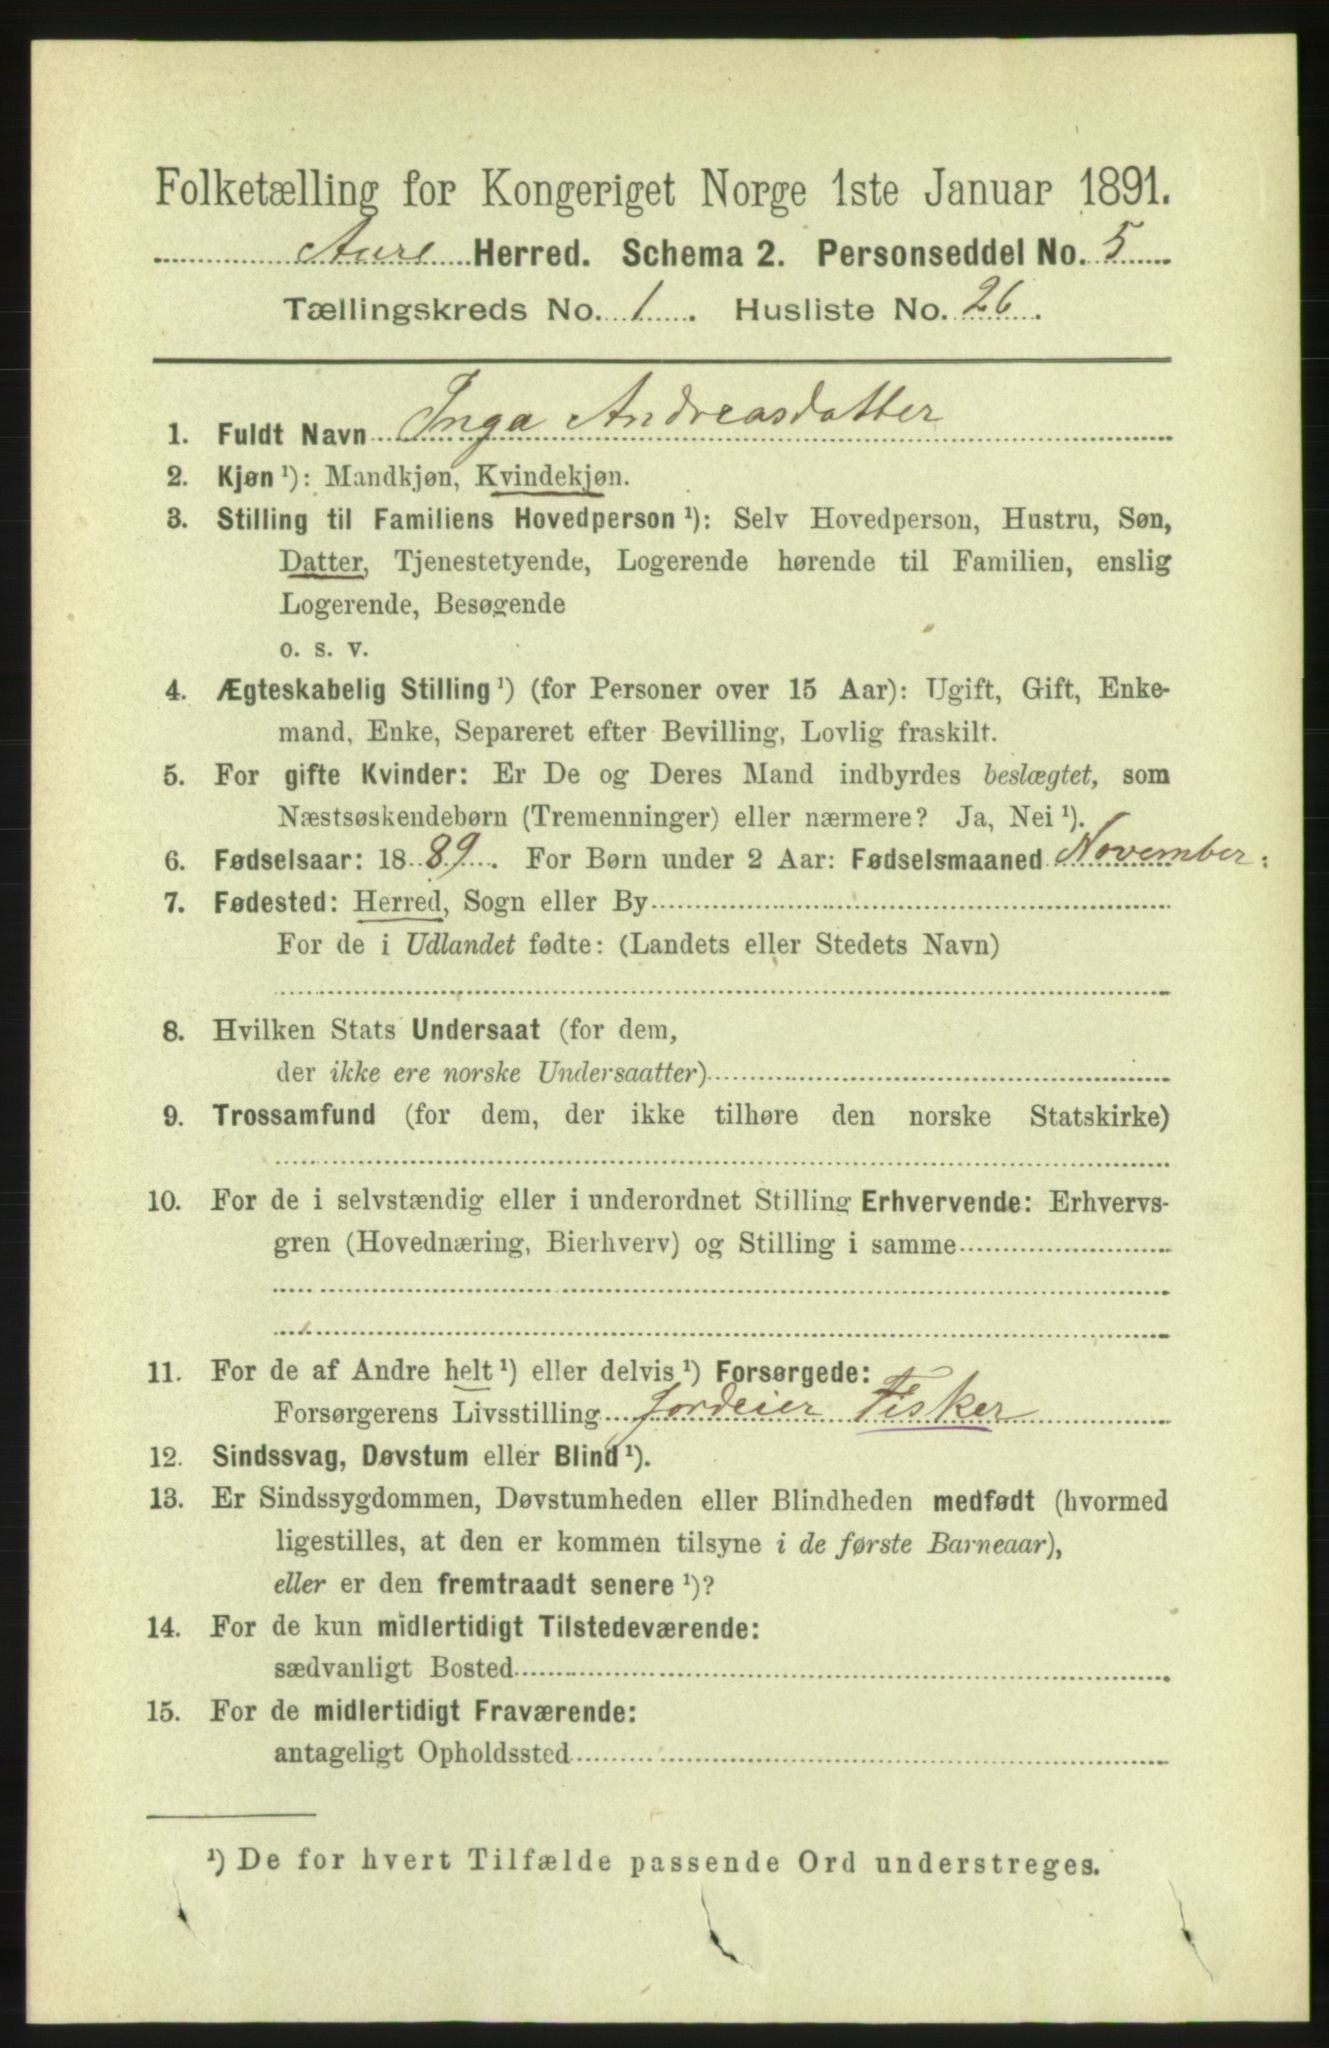 Folketælling for Kongeriget Norge 1ste Januar 1891.
Aure Herred. Schema 2. Personseddel No. 5
Tællingskreds No. 1. Husliste No. 26.
1. Fuldt Navn Inga Andreasdatter
2. Kjøn ¹): Mandkjøn, Kvindekjøn.
3. Stilling til Familiens Hovedperson ¹): Selv Hovedperson, Hustru, Søn,
Datter, Tjenestetyende, Logerende hørende til Familien, enslig
Logerende, Besøgende
o. s. v.
4. Ægteskabelig Stilling ¹) (for Personer over 15 Aar): Ugift, Gift, Enke-
mand, Enke, Separeret efter Bevilling, Lovlig fraskilt.
5. For gifte Kvinder: Er De og Deres Mand indbyrdes beslægtet, som
Næstsøskendebørn (Tremenninger) eller nærmere? Ja, Nei ¹).
6. Fødselsaar: 1889. For Børn under 2 Aar: Fødselsmaaned November.
7. Fødested: Herred, Sogn eller By
For de i Udlandet fødte: (Landets eller Stedets Navn)
8. Hvilken Stats Undersaat (for dem,
der ikke ere norske Undersaatter)
9. Trossamfund (for dem, der ikke tilhøre den norske Statskirke)
10. For de i selvstændig eller i underordnet Stilling Erhvervende: Erhvervs-
gren (Hovednæring, Bierhverv) og Stilling i samme
11. For de af Andre helt ¹) eller delvis ¹) Forsørgede:
Forsørgerens Livsstilling Jordeier Fisker
12. Sindssvag, Døvstum eller Blind ¹).
13. Er Sindssygdommen, Døvstumheden eller Blindheden medfødt (hvormed
ligestilles, at den er kommen tilsyne i de første Barneaar),
eller er den fremtraadt senere ¹)?
14. For de kun midlertidigt Tilstedeværende:
sædvanligt Bosted
15. For de midlertidigt Fraværende:
antageligt Opholdssted
¹) De for hvert Tilfælde passende Ord understreges.